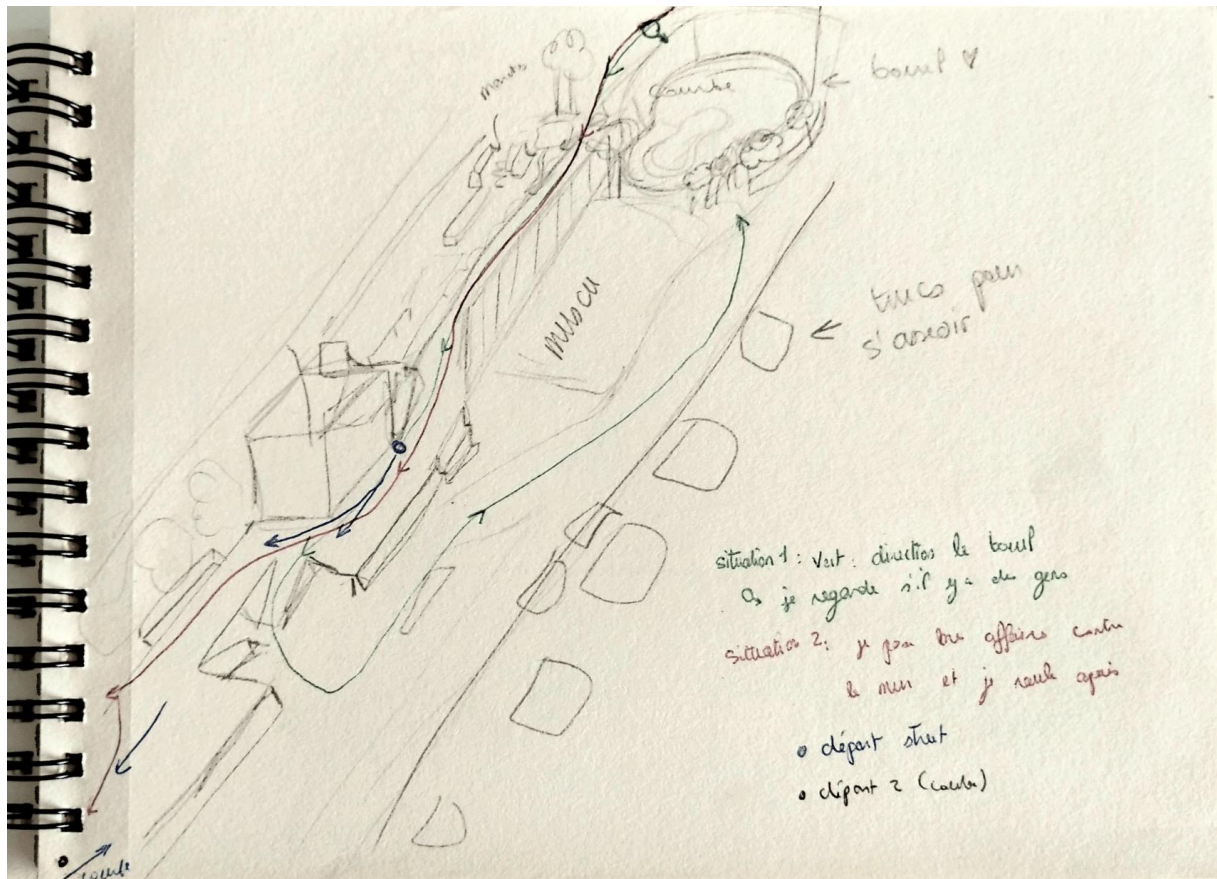 courbe
bowl ♡
muscu
trucs pour
s'asseoir
situation 1 : Vert : direction le bowl
je regarde s'il y a des gens
situation 2 : je pose mes affaires contre
le mur et je roule après
départ street
départ 2 (courbe)
courbe